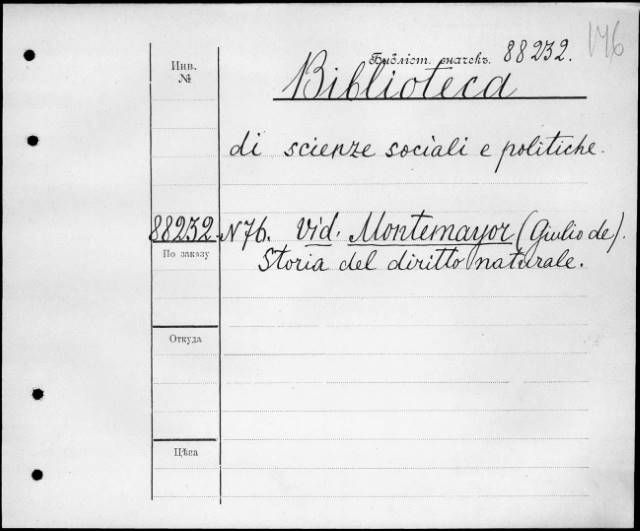 146
Инв.
№
Библіот. значекъ. 88232.
Biblioteca
di scienze sociali e politiche.
88232 N76. vid. Montemayor (Giulio de).
По заказу
Storia del diritto naturale.
Откуда
Цѣна